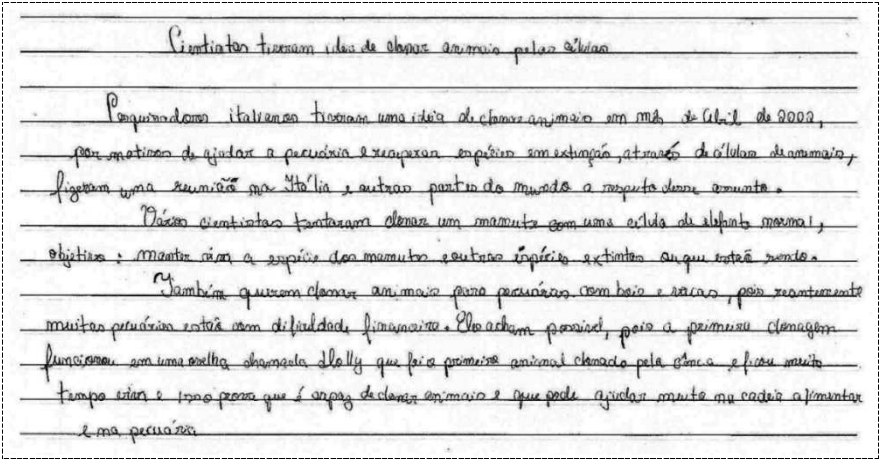 Cientistas tiveram idea de clonar animais pelas células
Pesquisadores italianos tiveram uma idéia de clonar animais em mês de Abril de 2002,
por motivos de ajudar a pecuária e recuperar espécies em extinção, através de células de animais,
fizeram uma reunião na Itália e outras partes do mundo a respeito desse assunto.
Vários cientistas tentaram clonar um mamute com uma célula de elefante normal,
objetivo: manter viva a espécie dos mamutes e outras espécies extintas ou que estão sendo.
Também querem clonar animais para pecuárias com bois e vacas, pois recentemente
muitas pecuárias estão com dificuldade financeira. Eles acham possível, pois a primeira clonagem
funcionou em uma ovelha chamada Dolly que foi o primeiro animal clonado pela e ficou muito
tempo viva e isso prova que é capaz de clonar animais e que pode ajudar muito na cadeia alimentar
e na pecuária.